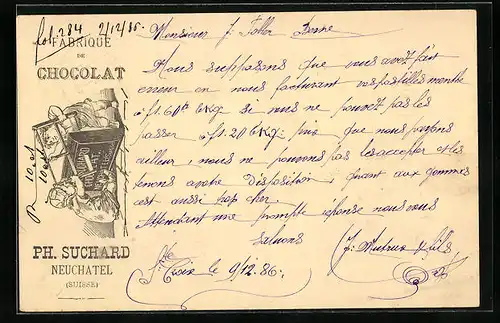 fol. 284 2/12/86.
FABRIQUE
DE
CHOCOLAT
PH. SUCHARD
NEUCHATEL
(SUISSE)
Monsieur J. Berne
Nous supposons que vous avez fait
erreur en nous facturant vos pastilles menthe
à fr. 60 le Kg si vous ne pouvez pas les
passer à fr. 20 le Kg: prix que nous payons
ailleur, nous ne pouvons pas les accepter et les
tenons à votre disposition, quant aux gommes
c'est aussi trop cher.
Attendant une prompte réponse nous vous
saluons
Ste Croix le 9/12.86. J. & fils